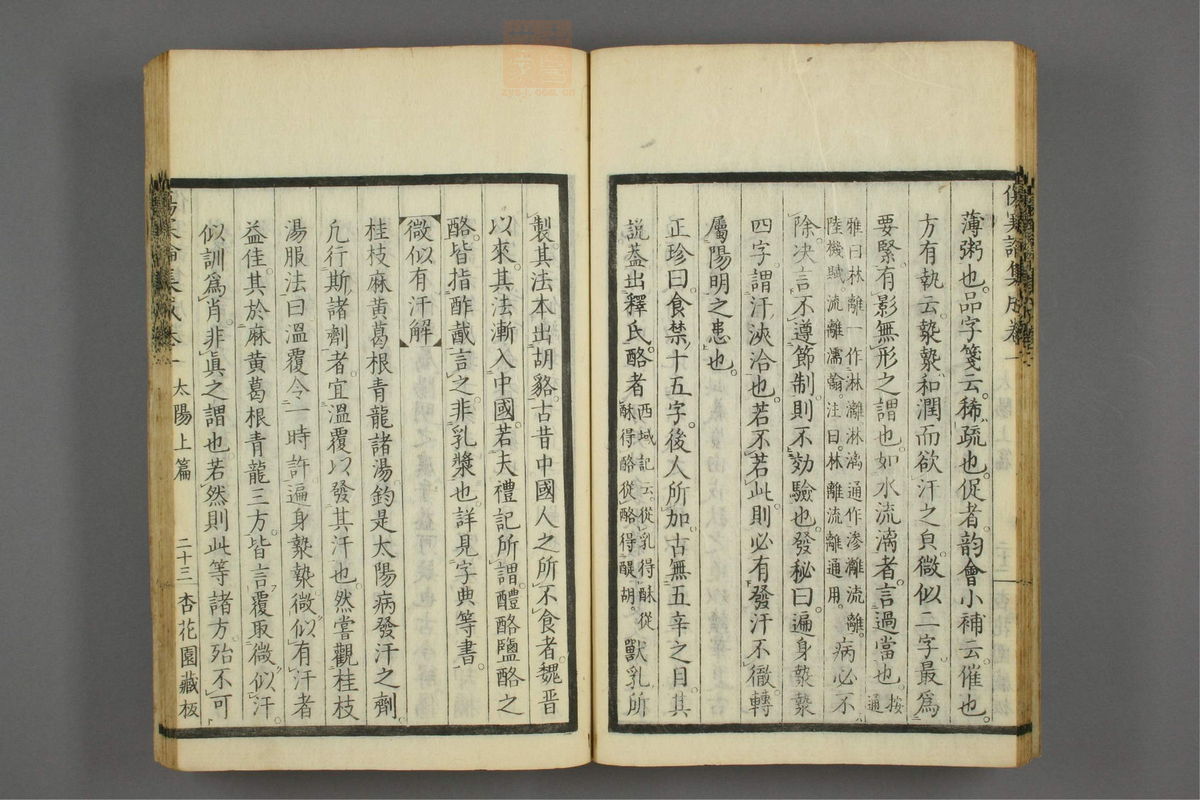 傷寒論集成卷一
薄粥也。品字箋云。稀疏也。促者。韵會小補云。催也。
方有執云。漐漐。和潤而欲汗之皃。微似二字。最爲
要緊。有影無形之謂也。如水流漓者。言過當也。按通
雅曰。林離一作淋灕淋漓。通作滲灕流離。
陸機賦。流離濡翰。注曰。林離流離通用。病必不
除。决言不遵節制。則不効驗也。發秘曰。遍身漐漐
四字。謂汗浹洽也。若不若此。則必有發汗不徹。轉
屬陽明之患也。
正珍曰。食禁十五字。後人所加。古無五辛之目。其
說蓋出釋氏。酪者西域記云。從乳得酥。從
酥得酪。從酪得醍醐。獸乳所
製。其法本出胡貉。古昔中國人之所不食者。魏晋
以來。其法漸入中國。若夫禮記所謂醴酪鹽酪之
酪。皆指酢酨言之。非乳漿也。詳見字典等書。
微似有汗解
桂枝麻黃葛根青龍諸湯。鈞是太陽病發汗之劑。
凢行斯諸劑者。宜溫覆以發其汗也。然嘗觀桂枝
湯服法曰。溫覆令一時許。遍身漐漐微似有汗者
益佳。其於麻黃葛根青龍三方。皆言覆取微似汗。
似訓爲肖。非眞之謂也。若然則此等諸方。殆不可
傷寒論集成卷一
太陽上篇
二十三
杏花園藏板